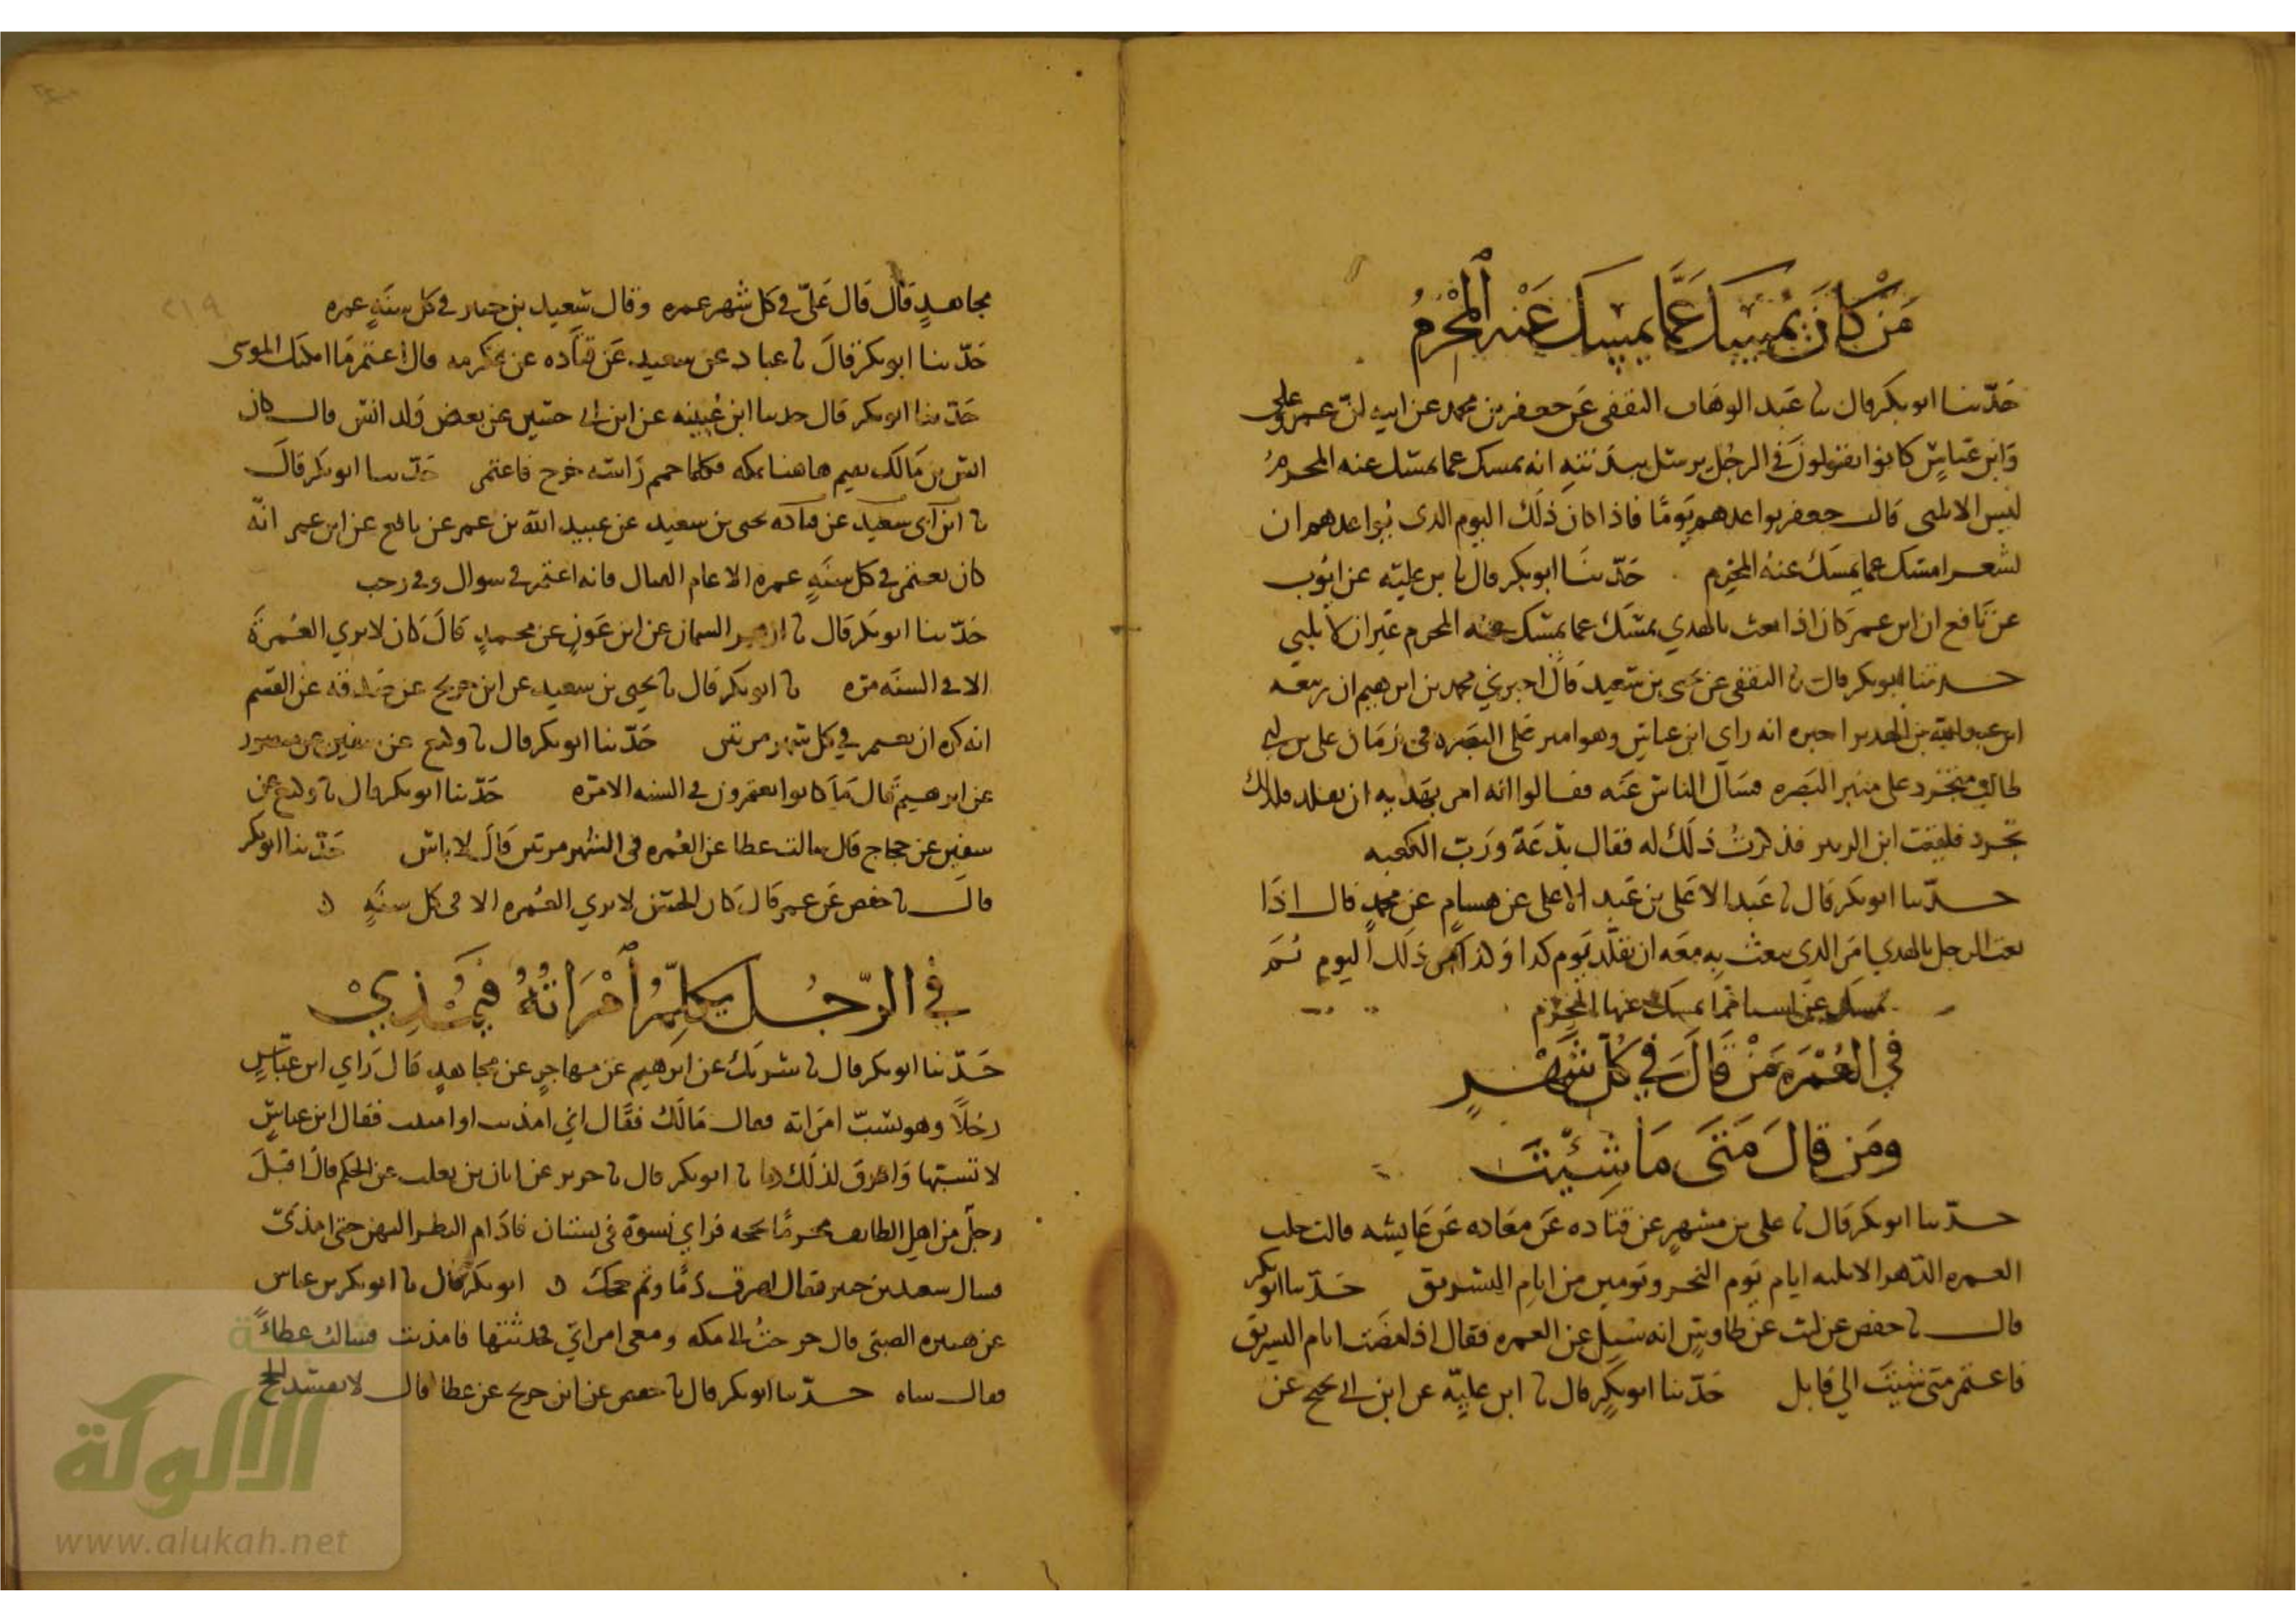 مَنْ كَانَ يُمْسِكُ عَمَّا يُمسِكُ عَنْه المُحْرِمُ
حَدّثنا ابو بكر قال نا عَبد الوهَاب الثقفى عَن جعفر بن محمد عن ابيه انّ عمر وعلى
وَابن عَبّاسٍ كانوا يقولونَ في الرجُل يرسل ببدَنتهِ انه يمسك عما يمسك عنه المحرمُ
ليس الا يلبى قال جعفر يواعدهم يَومًا فاذا كان ذلك اليوم الذى يُواعدهم ان
يشعر امسك عما يمسك عنهُ المحرم حَدّثنَا ابو بكر قال نا بن علية عن ايُوب
عن نَافع ان ابن عمر كان اذا بعث بالهدي يمسَك عما يمسك عنه المحرم غَير ان لا يلبي
حدثنا ابو بكر قال نا الثقفى عن يحيى بن سَعيد قال اخبرني محمد بن ابرهيم ان ربيعه
ابن عبد الله بن الهدير اخبره انه راى ابن عباس وهو امير عَلى البَصره فى زمَان على بن ابي
طالب متجَرد على منبر البَصره فسَال الناس عَنه فقالوا انه امر بهَديه ان يقلد فلذلك
تجرد فلقيت ابن الزبير فذكرتُ ذلك له فقال بدْعَة وَرَبّ الكعبه
حدّثنا ابو بكر قال نا عَبد الاعَلى بن عَبد الاعلى عن هسامٍ عن محمدٍ قال اذَا
بعث الرجل بالهدي امَر الذى يبعث بِه معَه ان يقلّد يَوم كذا وَكذا من ذلك اليوم ثم
يمسك عن اسيا مما يمسك عنها المحرم
في العُمْرَه مَنْ قَالَ فِي كُلّ شَهْرٍ
ومَن قالَ مَتَى مَا شِئْتَ
حدّثنا ابو بكر قَال نا على بن مسْهرٍ عن قتاده عَن معَاذه عَن عَايشه قالت حلت
العمره الدّهر الا ثلثه ايام يَوم النحر ويَومين من ايام التشريق حَدّثنا ابو بكر
قال نا حفص عن ليث عن طاوسٍ انه سُيل عن العمره فقال اذا مضَت ايام التسريق
فاعتمر متى شئت الى قابل حَدّثنا ابو بكرٍ قال نا ابن عليّه عن ابن ابي نجيح عن
مجاهدٍ قَال قَال عَليّ في كل شهر عمره وقال سَعيد بن جبير في كل سنَةٍ عمره
حَدّثنا ابو بكر قالَ نا عباد عن سعيد عَن قتَاده عن عكرمه قال اعتمر مَا امكنك الموسى
حَدّثنا ابو بكر قال حدثنا ابن عُيينه عن ابن ابي حسين عن بعض وَلد انس قال كان
انس بن مَالك يقيم هاهنا بمكه فكلما حمم رَاسه خرج فاعتمر حَدّثنا ابو بكر قالَ
نا ابن ابى سعيد عن قتاده يحيى بن سعيد عن عبيد الله بن عمر عن نافع عن ابن عمر انّه
كان يعتمر في كل سنَةٍ عمره الا عام القتال فانه اعتمر في شوال وفي رجب
حَدّثنا ابو بكر قال نا ازهر السمان عن ابن عَون عن محمدٍ قالَ كان لا يرى العُمرَة
الا في السنَه مَرّه نا ابو بكر قال نا يحيى بن سعيد عن ابن جريج عن صَدقه عن القسم
انه كره ان يعتمر في كل شهر مرتين حَدّثنا ابو بكر قال نا وكيع عن سفين عن منصور
عن ابرهيم قَال مَا كانوا يعتمرون في السنه الا مَرّه حَدّثنا ابو بكر قال نا وكيع عن
سفين عن حجاج قال سالت عطا عن العُمره في الشهر مرتين قَالَ لا باس حَدّثنا ابو بكر
قالَ نا حفص عَن عمر قَال كَان الحسَن لا يرى العُمره الا في كل سنَةٍ
في الرّجُل يُكلّمُ امْرَاتَهُ فيُمْذِيْ
حَدّثنا ابو بكر قال نا شريَك عن ابرهيم عَن مهاجرٍ عن مجاهدٍ قَال رَاى ابن عَبّاسٍ
رجُلاً وهو يسَبّ امرَاته فقال مَالَك فقَال اني امذيت او امنيت فقال ابن عباسٍ
لا تسبّها وَاهْرق لذلك دما نا ابو بكر قال نا جرير عن ابان بن تغلب عن الحكم قالَ اقبَلَ
رجلٌ من اهل الطايف محرمًا بحجه فرَاي نسوَة فى بستان فادَام النظر اليهن حتى امذىَ
فسال سعيد بن جبير فقال اهرق دمًا وتم حجك ابو بكر قال نا ابو بكر بن عياش
عن مغيره الضبّى قال خرجتُ الى مكه ومعى امراتى فحدثتها فامذيت فسالت عطاءً
فقال ساه حدّثنا ابو بكر قال نا حفص عن ابن جريج عن عطا قال لا يفسد الحج
٢١٩
الألوكة
www.alukah.net